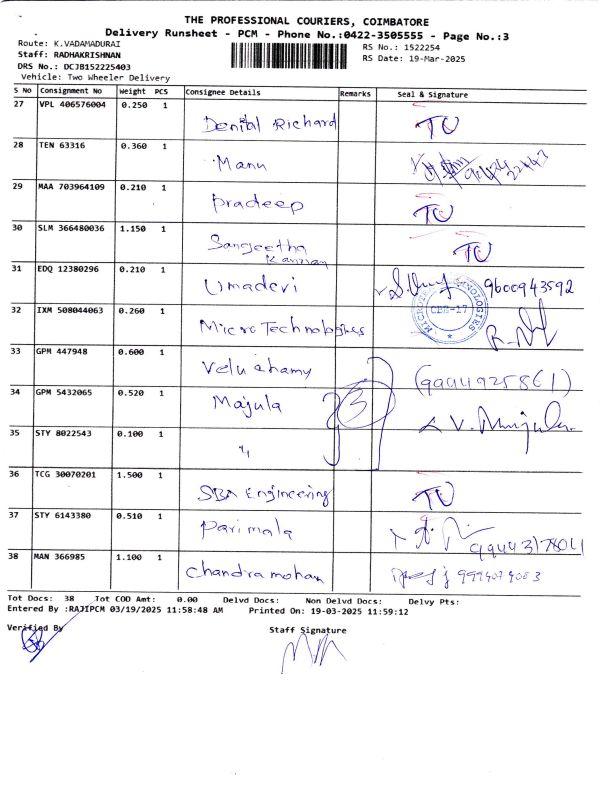 THE PROFESSIONAL COURIERS, COIMBATORE
Delivery Runsheet - PCM - Phone No.:0422-3505555 - Page No.:3
Route: K.VADAMADURAI RS No.: 1522254
Staff: RADHAKRISHNAN RS Date: 19-Mar-2025
DRS No.: DCJB152225403
Vehicle: Two Wheeler Delivery
S No Consignment No Weight PCS Consignee Details Remarks Seal & Signature
27 VPL 406576004 0.250 1 Denital Richard TU
28 TEN 63316 0.360 1 Manu
29 MAA 703964109 0.210 1 Pradeep TU
30 SLM 366480036 1.150 1 Sangeetha TU
31 EDQ 12380296 0.210 1 Umadevi 9600943592
32 IXM 508044063 0.260 1 Micro Technologies CBE-17
33 GPM 447948 0.600 1 (9994925861)
34 GPM 5432065 0.520 1 Majula 3
35 STY 8022543 0.100 1 "
36 TCG 30070201 1.500 1 SBA Engineering TU
37 STY 6143380 0.510 1 Parimala
38 MAN 366985 1.100 1 Chandramohan
Tot Docs: 38 Tot COD Amt: 0.00 Delvd Docs: Non Delvd Docs: Delvy Pts:
Entered By :RAJIPCM 03/19/2025 11:58:48 AM Printed On: 19-03-2025 11:59:12
Verified By Staff Signature